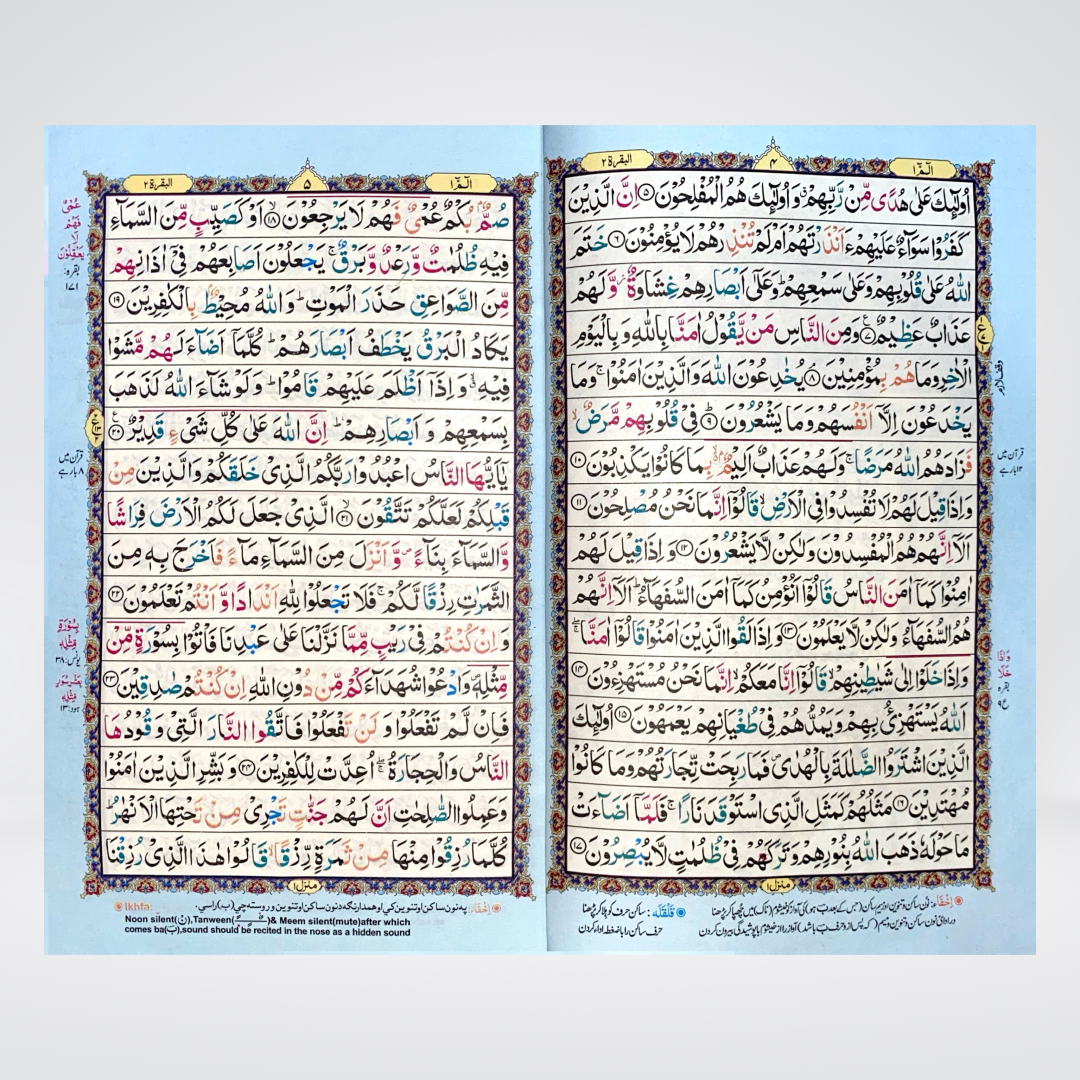 الٓمّٓ ١
٤
البقرة ٢
اُولٰٓئِكَ عَلٰى هُدًى مِّنْ رَّبِّهِمْ ۗ وَاُولٰٓئِكَ هُمُ الْمُفْلِحُوْنَ ۝۵ اِنَّ الَّذِيْنَ
كَفَرُوْا سَوَآءٌ عَلَيْهِمْ ءَاَنْذَرْتَهُمْ اَمْ لَمْ تُنْذِرْهُمْ لَا يُؤْمِنُوْنَ ۝۶ خَتَمَ
اللّٰهُ عَلٰى قُلُوْبِهِمْ وَعَلٰى سَمْعِهِمْ ؕ وَعَلٰٓى اَبْصَارِهِمْ غِشَاوَةٌ ؗ وَّلَهُمْ
عَذَابٌ عَظِيْمٌ ۝۷ وَمِنَ النَّاسِ مَنْ يَّقُوْلُ اٰمَنَّا بِاللّٰهِ وَبِالْيَوْمِ
الْاٰخِرِ وَمَا هُمْ بِمُؤْمِنِيْنَ ۝۸ يُخٰدِعُوْنَ اللّٰهَ وَالَّذِيْنَ اٰمَنُوْا ۚ وَمَا
يَخْدَعُوْنَ اِلَّاۤ اَنْفُسَهُمْ وَمَا يَشْعُرُوْنَ ۝۹ فِيْ قُلُوْبِهِمْ مَّرَضٌ ۙ
فَزَادَهُمُ اللّٰهُ مَرَضًا ۚ وَلَهُمْ عَذَابٌ اَلِيْمٌۢ ۙ بِمَا كَانُوْا يَكْذِبُوْنَ ۝۱۰
وَاِذَا قِيْلَ لَهُمْ لَا تُفْسِدُوْا فِى الْاَرْضِ ۙ قَالُوْۤا اِنَّمَا نَحْنُ مُصْلِحُوْنَ ۝۱۱
اَلَاۤ اِنَّهُمْ هُمُ الْمُفْسِدُوْنَ وَلٰكِنْ لَّا يَشْعُرُوْنَ ۝۱۲ وَاِذَا قِيْلَ لَهُمْ
اٰمِنُوْا كَمَاۤ اٰمَنَ النَّاسُ قَالُوْۤا اَنُؤْمِنُ كَمَاۤ اٰمَنَ السُّفَهَآءُ ؕ اَلَاۤ اِنَّهُمْ
هُمُ السُّفَهَآءُ وَلٰكِنْ لَّا يَعْلَمُوْنَ ۝۱۳ وَاِذَا لَقُوا الَّذِيْنَ اٰمَنُوْا قَالُوْۤا اٰمَنَّا ۖۚ
وَاِذَا خَلَوْا اِلٰى شَيٰطِيْنِهِمْ ۙ قَالُوْۤا اِنَّا مَعَكُمْ ۙ اِنَّمَا نَحْنُ مُسْتَهْزِءُوْنَ ۝۱۴
اَللّٰهُ يَسْتَهْزِئُ بِهِمْ وَيَمُدُّهُمْ فِيْ طُغْيَانِهِمْ يَعْمَهُوْنَ ۝۱۵ اُولٰٓئِكَ
الَّذِيْنَ اشْتَرَوُا الضَّلٰلَةَ بِالْهُدٰى ۪ فَمَا رَبِحَتْ تِّجَارَتُهُمْ وَمَا كَانُوْا
مُهْتَدِيْنَ ۝۱۶ مَثَلُهُمْ كَمَثَلِ الَّذِى اسْتَوْقَدَ نَارًا ۚ فَلَمَّاۤ اَضَآءَتْ
مَا حَوْلَهٗ ذَهَبَ اللّٰهُ بِنُوْرِهِمْ وَتَرَكَهُمْ فِيْ ظُلُمٰتٍ لَّا يُبْصِرُوْنَ ۝۱۷
منزل ١
وقف لازم
قرآن میں
۱۲ بار ہے
وَاِذَا
خَلَا
بقره
ع ۹
اِخْفَاء: نون ساکن و تنوین اور میم ساکن (جس کے بعد ب ہو) کی آواز کو خیشوم (ناک) میں چھپا کر پڑھنا
قَلْقَلَه: ساکن حرف کو ہلا کر پڑھنا
الٓمّٓ ١
٥
البقرة ٢
صُمٌّۢ بُكْمٌ عُمْيٌ فَهُمْ لَا يَرْجِعُوْنَ ۝۱۸ اَوْ كَصَيِّبٍ مِّنَ السَّمَآءِ
فِيْهِ ظُلُمٰتٌ وَّرَعْدٌ وَّبَرْقٌ ۚ يَجْعَلُوْنَ اَصَابِعَهُمْ فِيْۤ اٰذَانِهِمْ
مِّنَ الصَّوَاعِقِ حَذَرَ الْمَوْتِ ؕ وَاللّٰهُ مُحِيْطٌۢ بِالْكٰفِرِيْنَ ۝۱۹
يَكَادُ الْبَرْقُ يَخْطَفُ اَبْصَارَهُمْ ؕ كُلَّمَاۤ اَضَآءَ لَهُمْ مَّشَوْا
فِيْهِ ۙ وَاِذَاۤ اَظْلَمَ عَلَيْهِمْ قَامُوْا ؕ وَلَوْ شَآءَ اللّٰهُ لَذَهَبَ
بِسَمْعِهِمْ وَاَبْصَارِهِمْ ؕ اِنَّ اللّٰهَ عَلٰى كُلِّ شَيْءٍ قَدِيْرٌ ۝۲۰
يٰۤاَيُّهَا النَّاسُ اعْبُدُوْا رَبَّكُمُ الَّذِيْ خَلَقَكُمْ وَالَّذِيْنَ مِنْ
قَبْلِكُمْ لَعَلَّكُمْ تَتَّقُوْنَ ۝۲۱ الَّذِيْ جَعَلَ لَكُمُ الْاَرْضَ فِرَاشًا
وَّالسَّمَآءَ بِنَآءً ۪ وَّاَنْزَلَ مِنَ السَّمَآءِ مَآءً فَاَخْرَجَ بِهٖ مِنَ
الثَّمَرٰتِ رِزْقًا لَّكُمْ ۚ فَلَا تَجْعَلُوْا لِلّٰهِ اَنْدَادًا وَّاَنْتُمْ تَعْلَمُوْنَ ۝۲۲
وَاِنْ كُنْتُمْ فِيْ رَيْبٍ مِّمَّا نَزَّلْنَا عَلٰى عَبْدِنَا فَاْتُوْا بِسُوْرَةٍ مِّنْ
مِّثْلِهٖ ۪ وَادْعُوْا شُهَدَآءَكُمْ مِّنْ دُوْنِ اللّٰهِ اِنْ كُنْتُمْ صٰدِقِيْنَ ۝۲۳
فَاِنْ لَّمْ تَفْعَلُوْا وَلَنْ تَفْعَلُوْا فَاتَّقُوا النَّارَ الَّتِيْ وَقُوْدُهَا
النَّاسُ وَالْحِجَارَةُ ۖۚ اُعِدَّتْ لِلْكٰفِرِيْنَ ۝۲۴ وَبَشِّرِ الَّذِيْنَ اٰمَنُوْا
وَعَمِلُوا الصّٰلِحٰتِ اَنَّ لَهُمْ جَنّٰتٍ تَجْرِيْ مِنْ تَحْتِهَا الْاَنْهٰرُ ؕ
كُلَّمَا رُزِقُوْا مِنْهَا مِنْ ثَمَرَةٍ رِّزْقًا ۙ قَالُوْا هٰذَا الَّذِيْ رُزِقْنَا
منزل ١
عُمْيٌ
فَهُمْ
لَا
يَعْقِلُوْنَ
بقره:
۱۷۱
قرآن میں
۸ بار ہے
بِسُوْرَةٍ
مِّثْلِهٖ
یونس: ۳۸
بِعَشْرِ سُوَرٍ
مِّثْلِهٖ
ہود: ۱۳
Ikhfa:
Noon silent(نْ),Tanween(ـًـٍـٌ)& Meem silent(mute)after which
comes ba(ب),sound should be recited in the nose as a hidden sound